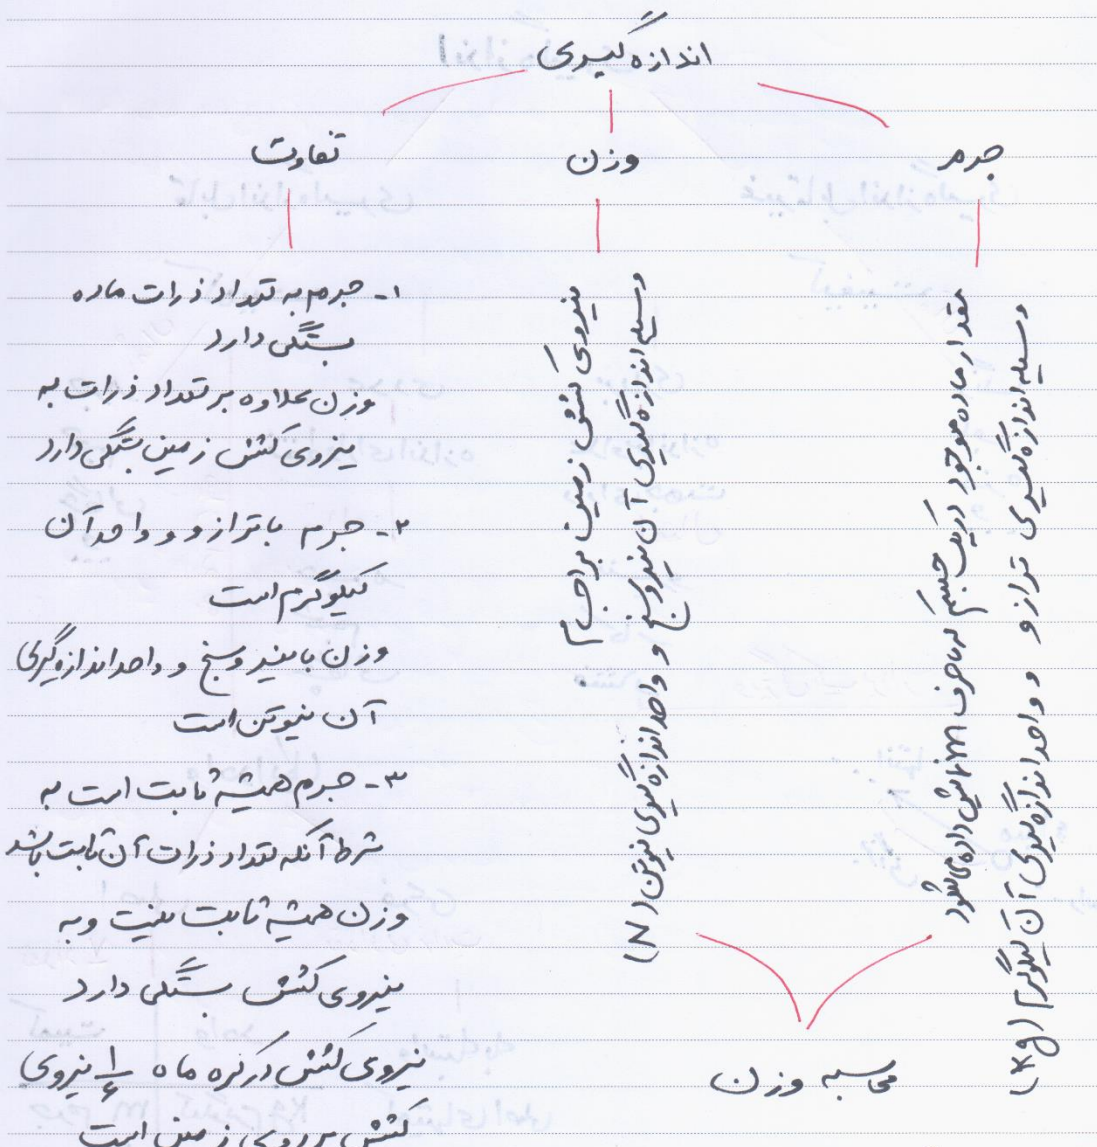 اندازه گیری
جرم
وزن
تفاوت
مقدار ماده موجود در یک جسم که با حرف m نمایش داده می شود
وسیله اندازه گیری ترازو و واحد اندازه گیری آن کیلوگرم (kg)
نیروی کشش زمین بر اجسام
وسیله اندازه گیری آن نیروسنج و واحد اندازه گیری نیوتن (N)
محاسبه وزن
۱- جرم به تعداد ذرات ماده
بستگی دارد
وزن علاوه بر تعداد ذرات به
نیروی کشش زمین بستگی دارد
۲- جرم با ترازو و واحد آن
کیلوگرم است
وزن با نیروسنج و واحد اندازه گیری
آن نیوتن است
۳- جرم همیشه ثابت است به
شرط آنکه تعداد ذرات آن ثابت باشد
وزن همیشه ثابت نیست و به
نیروی کشش بستگی دارد
نیروی کشش در کره ماه ۱/۶ نیروی
کشش بر روی زمین است